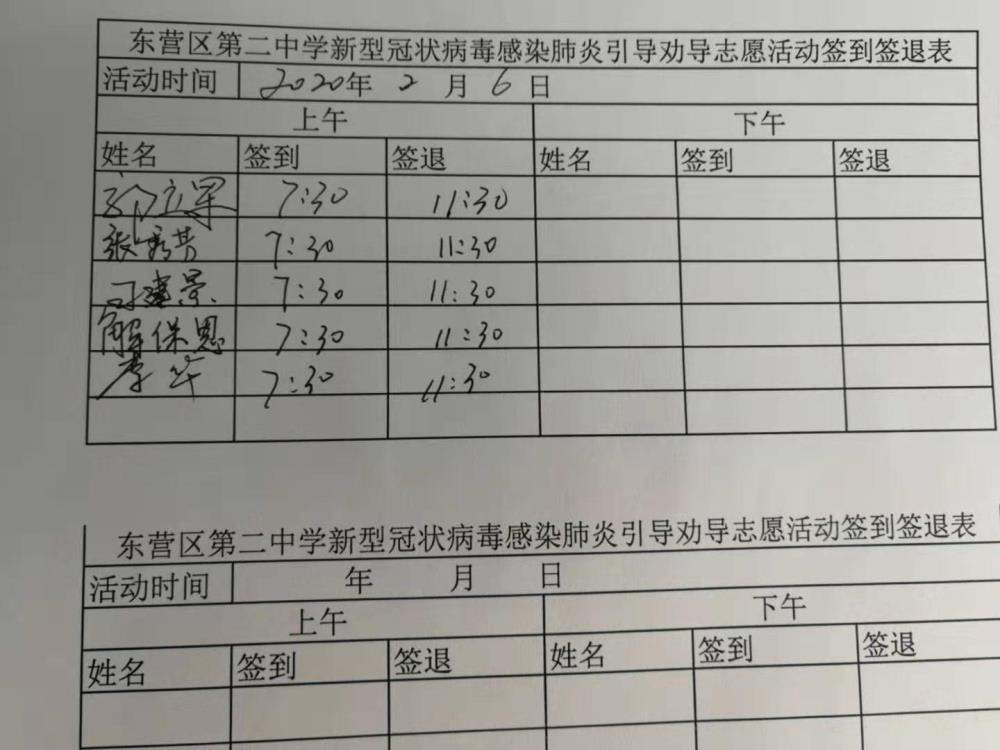 东营区第二中学新型冠状病毒感染肺炎引导劝导志愿活动签到签退表
活动时间 2020年 2 月 6 日
上午 下午
姓名 签到 签退 姓名 签到 签退
立果 7:30 11:30
张秀芳 7:30 11:30
建景 7:30 11:30
解保恩 7:30 11:30
李华 7:30 11:30
东营区第二中学新型冠状病毒感染肺炎引导劝导志愿活动签到签退表
活动时间 年 月 日
上午 下午
姓名 签到 签退 姓名 签到 签退